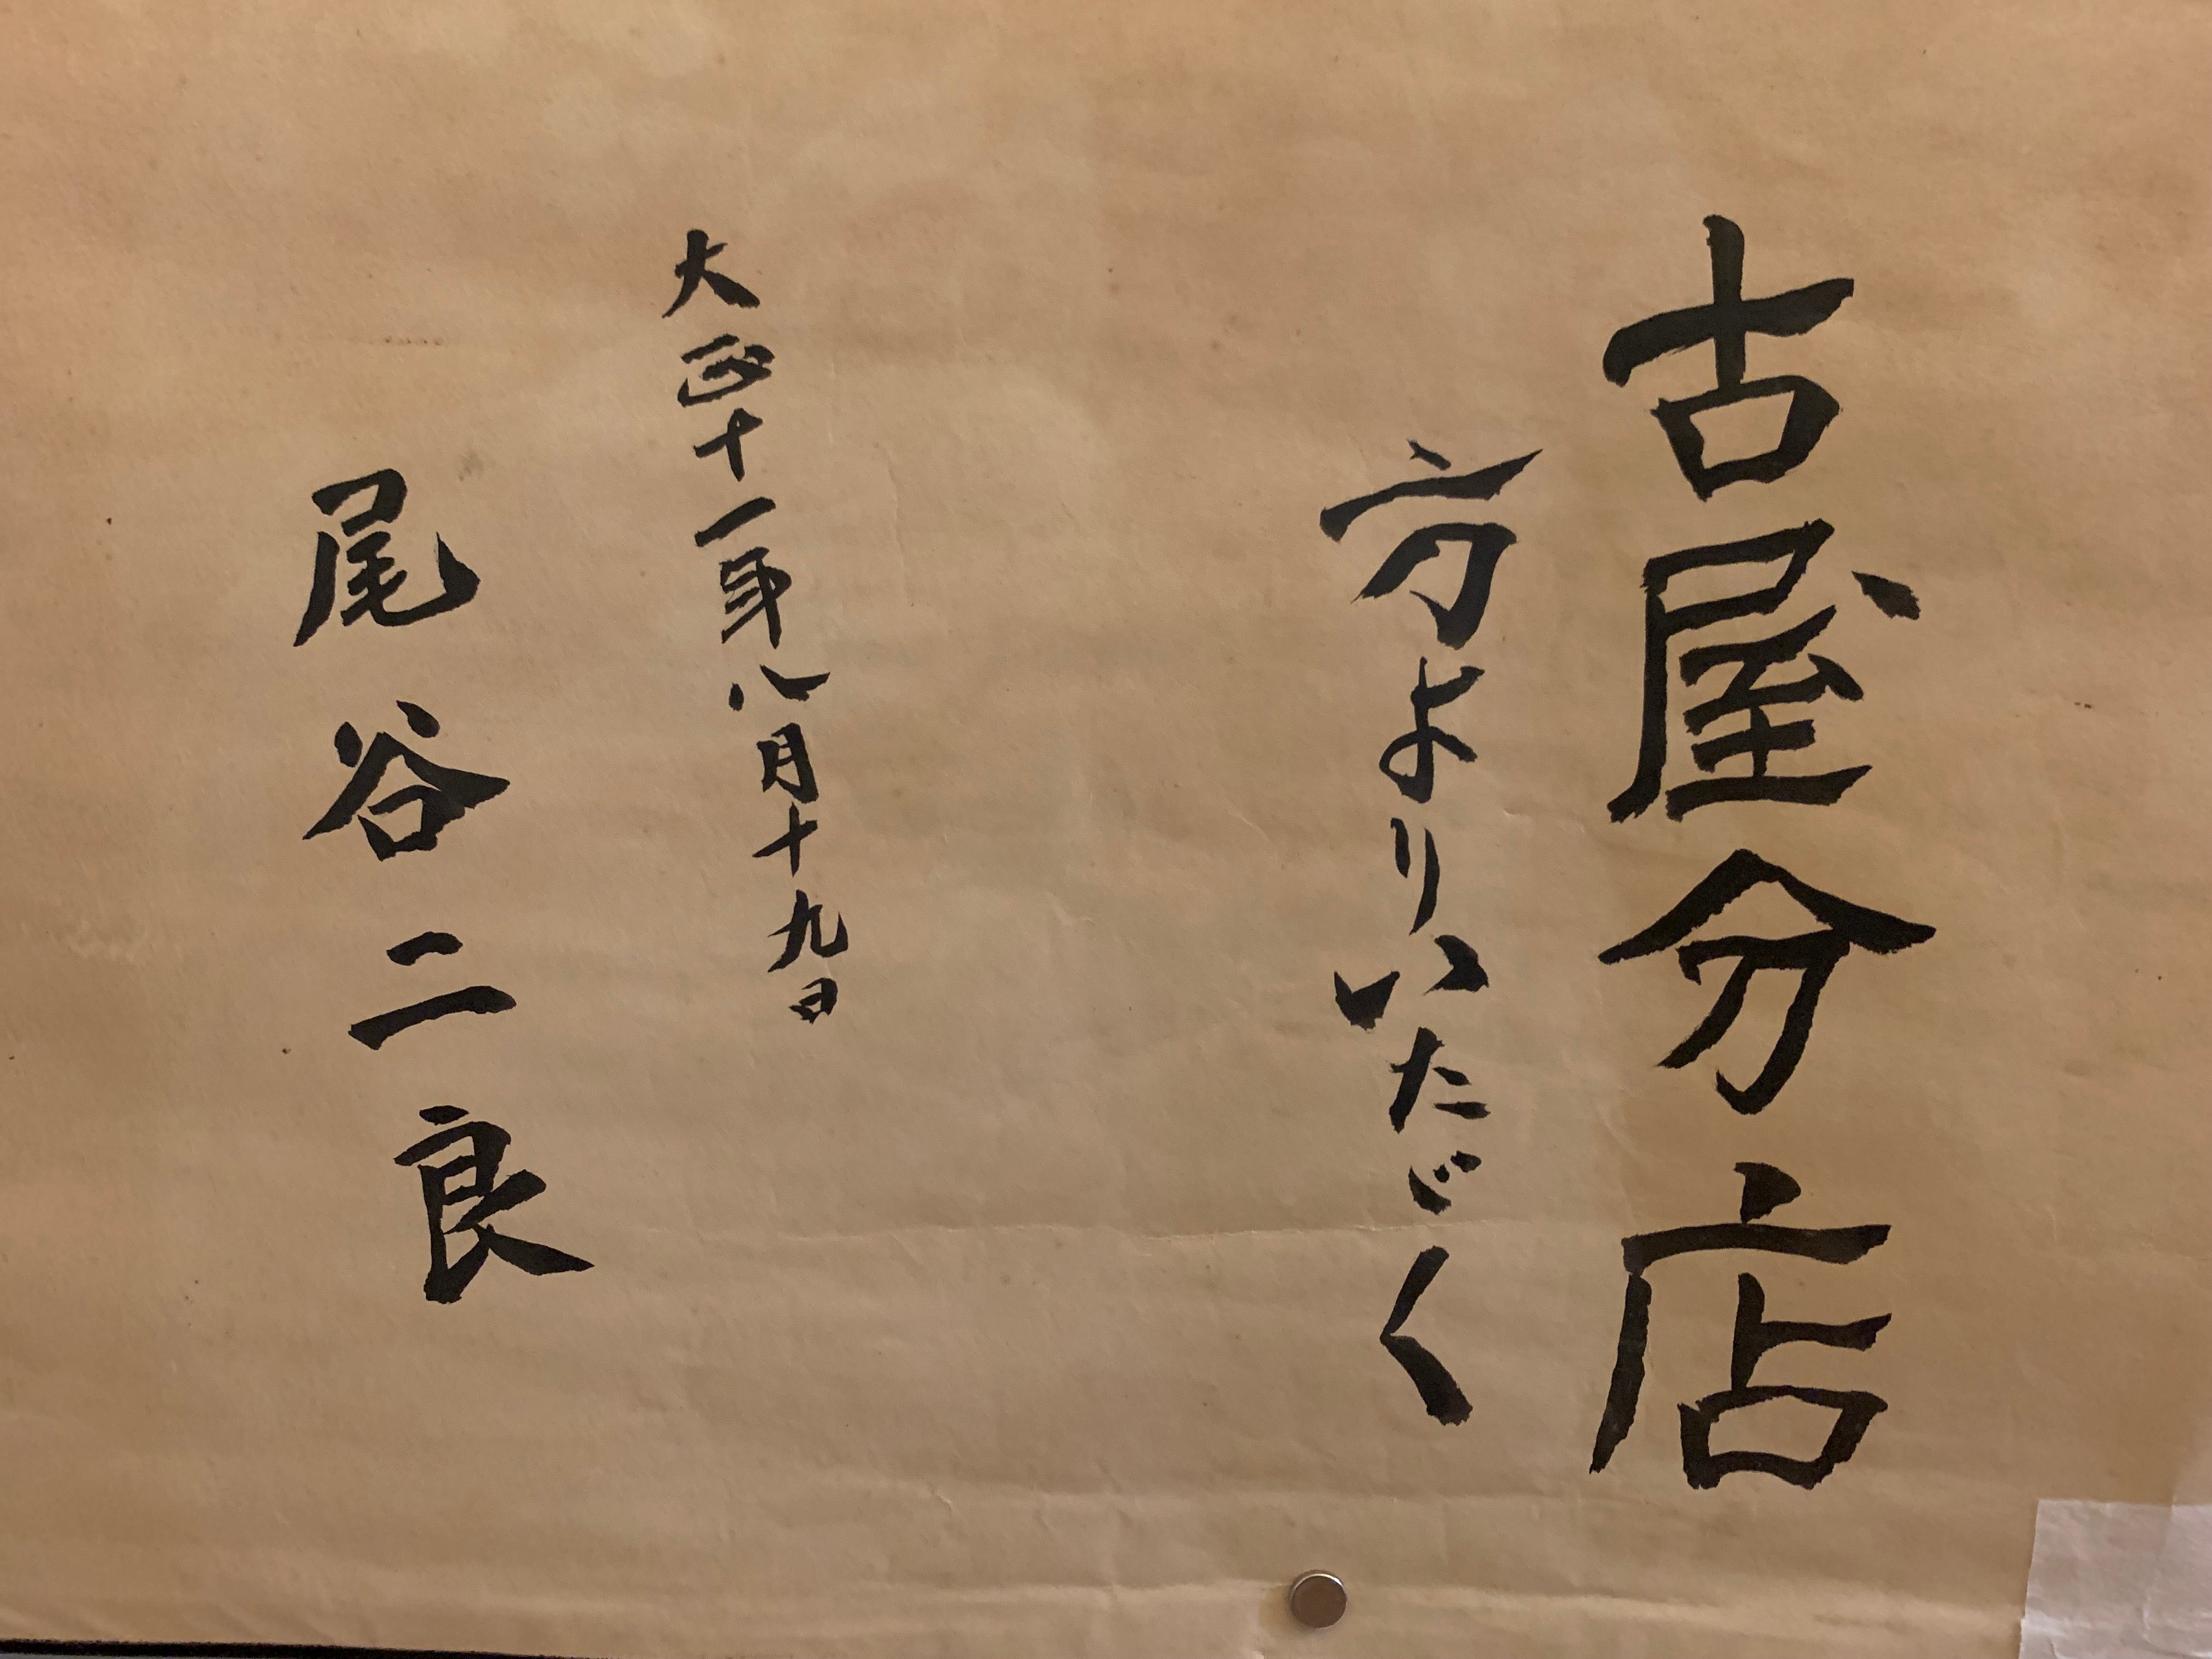 古屋分店
方よりいたゞく
大正十一年八月十九日
尾谷二良